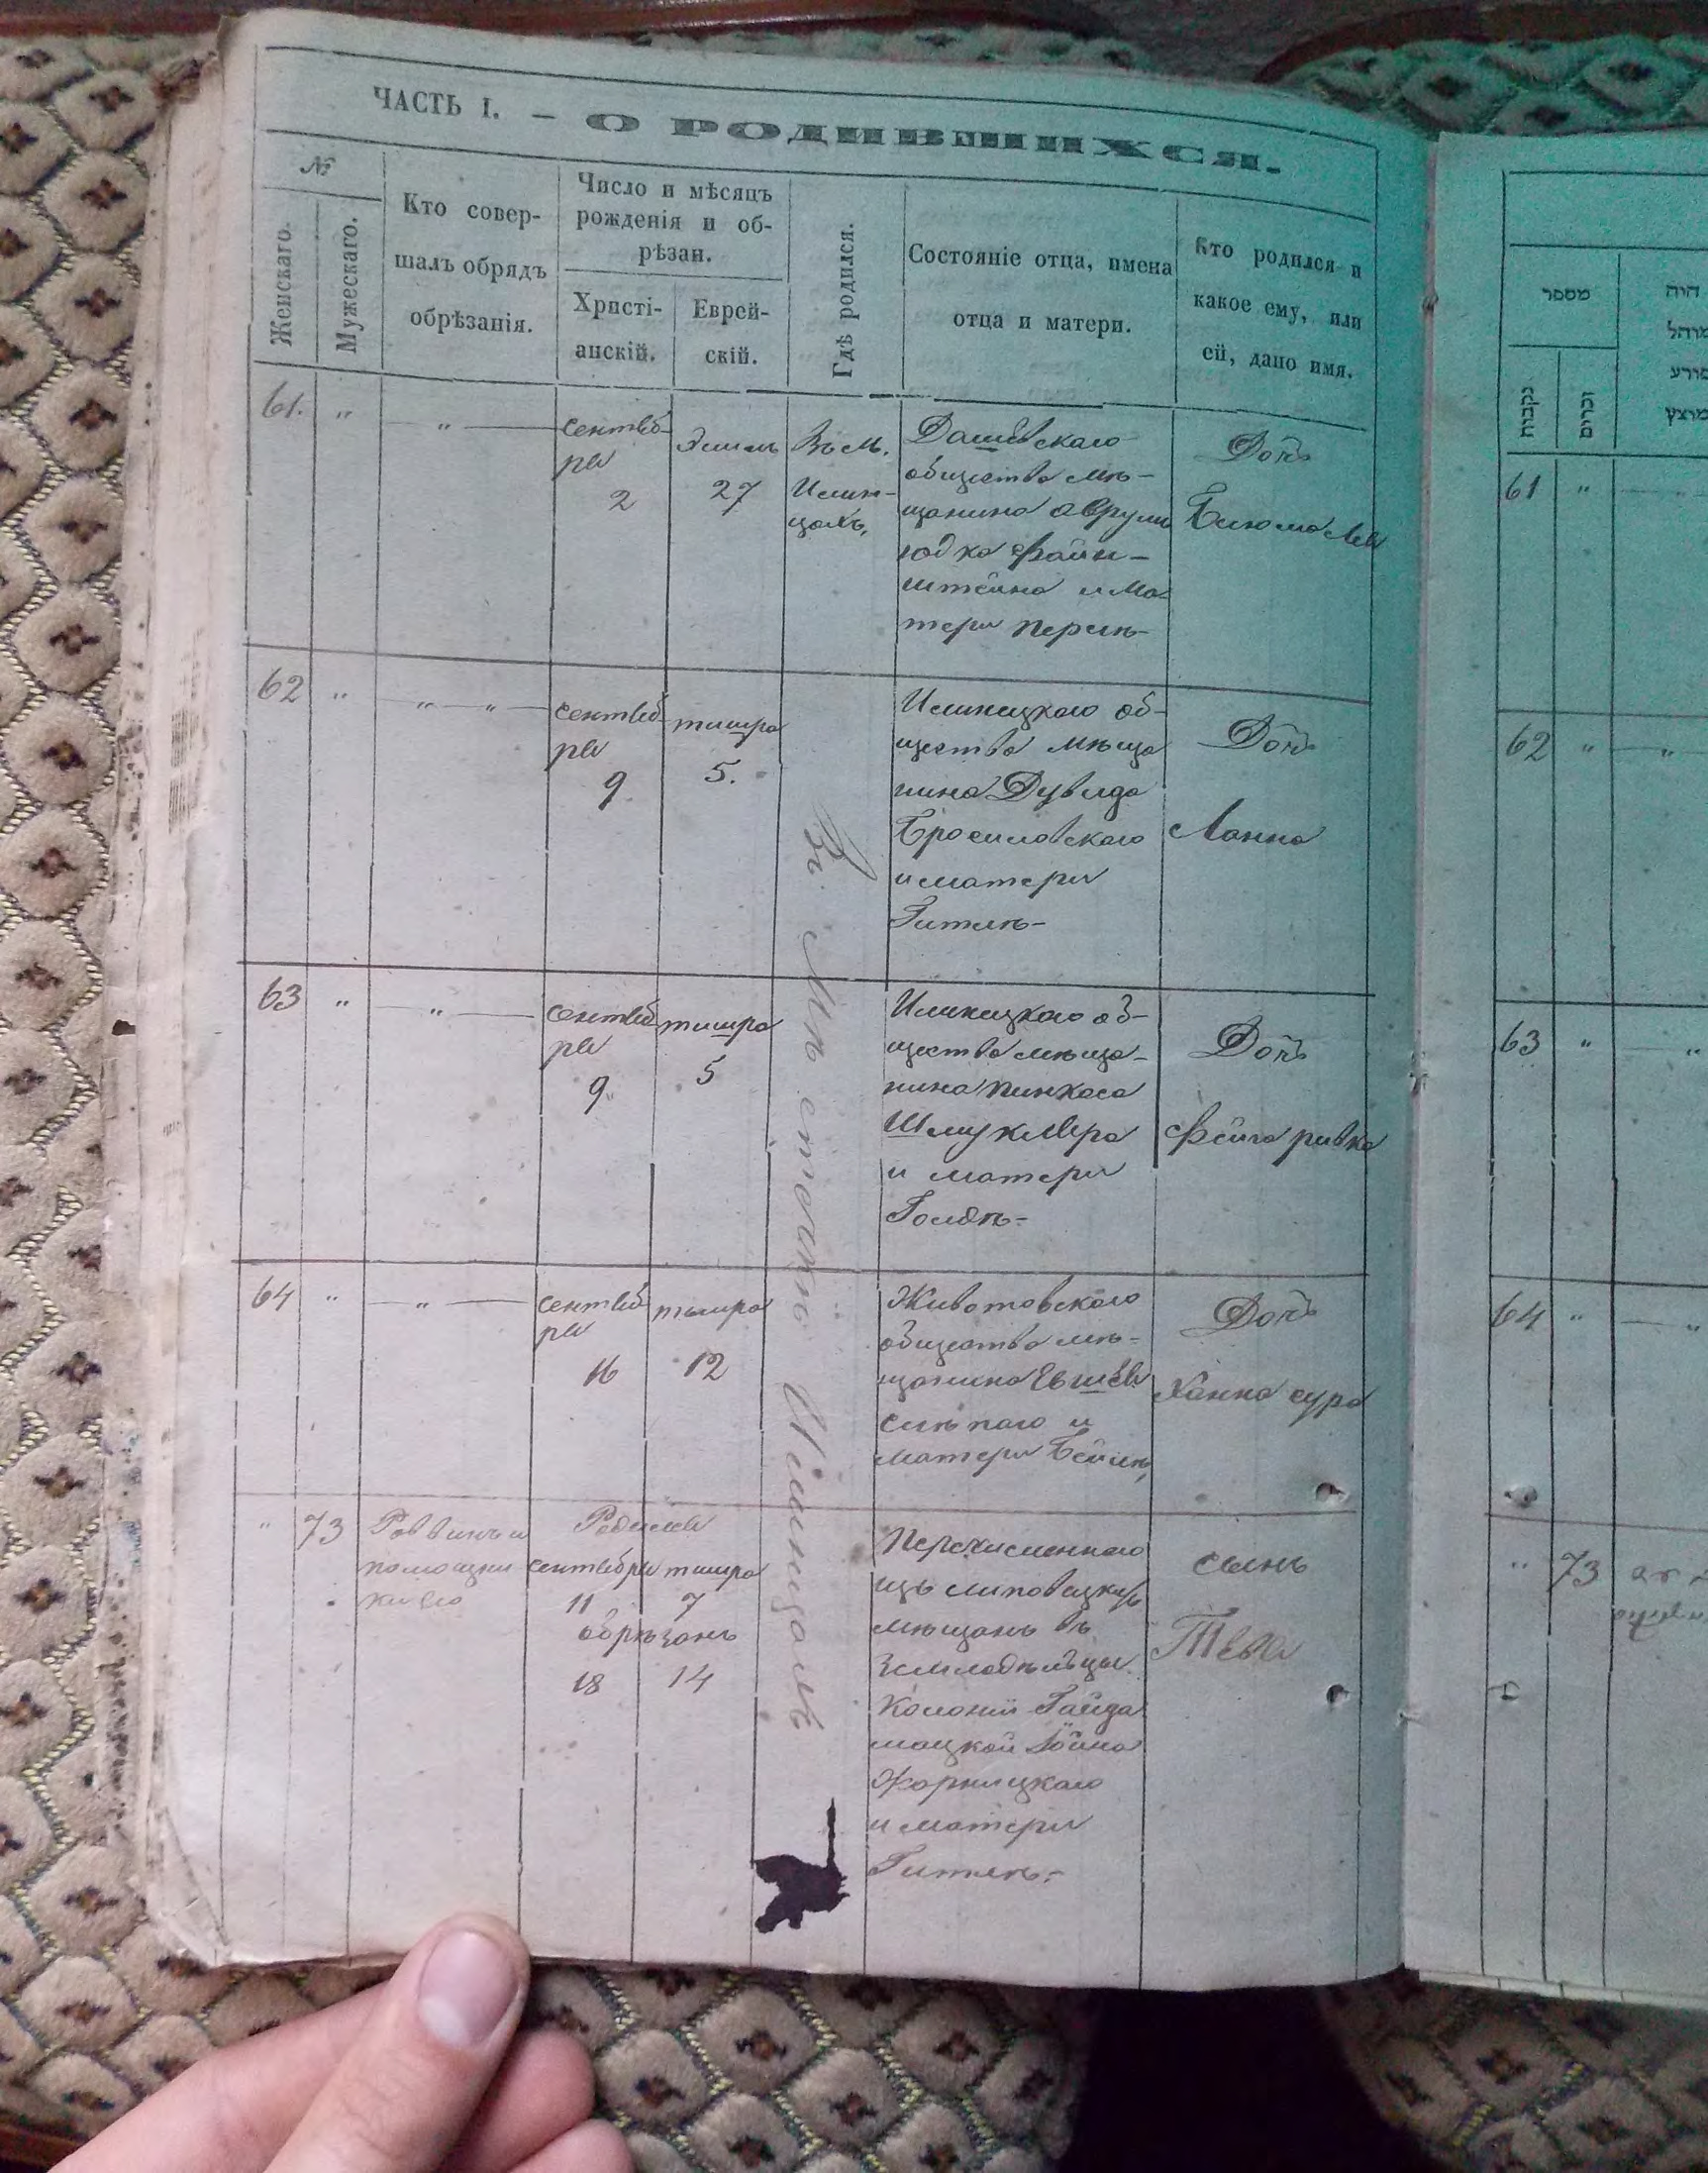 ЧАСТЬ I. – О РОДИВШИХСЯ.
№
Женскаго.
Мужескаго.
Кто совер-
шалъ обрядъ
обрѣзанія.
Число и мѣсяцъ
рожденія и об-
рѣзан.
Христі-
анскій.
Еврей-
скій.
Гдѣ родился.
Состояніе отца, имена
отца и матери.
Кто родился и
какое ему, или
ей, дано имя.
61.
"
"
сентяб-
ря
2
Элиль
27
Въ М.
Илин-
цахъ,
Дашевскаго
общества мѣ-
щанина Аврума
Юдка Файн-
штейна и ма-
тери Перлѣ-
Дочь
62
"
" "
сентяб
ря
9
тишра
5.
Илинецкаго об-
щества мѣща
нина Дувида
Бросиловскаго
и матери
Гитлѣ-
Дочь
Ханна
63
"
"
сентяб
ря
9
тишра
5
Илинецкаго об-
щества мѣща-
нина Пинхаса
Шмуклера
и матери
Голдѣ-
Дочь
Фейга ривка
64
"
"
сентяб
ря
16
тишра
12
Животовскаго
общества мѣ-
щанина Евшея
Слѣпаго и
матери Бейлѣ,
Дочь
Ханна сура
"
73
Раввинъ и
помощни
къ его
Родился
сентября
11
тишра
7
обрѣзанъ
18
14
Перечисленнаго
изъ липовецкихъ
мѣщанъ въ
Земледѣльцы
Колоніи Гайда
мацкой
и матери
Гитлѣ-
сынъ
Въ Мѣстечкѣ Илинцахъ
מספר
נקבות
זכרים
היה
מוהל
פורע
מוצץ
61
"
62
"
"
63
"
"
64
"
"
"
73